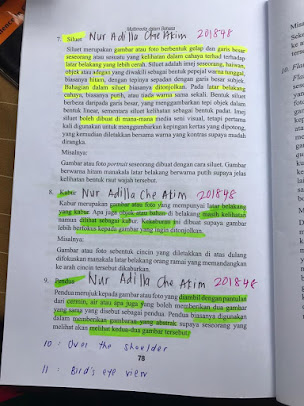 7. Siluet Nur Adilla Che Atim 201848
Siluet merupakan gambar atau foto berbentuk gelap dan garis besar
seseorang atau sesuatu yang kelihatan dalam cahaya terhad terhadap
latar belakang yang lebih cerah. Siluet adalah imej seseorang, haiwan,
objek atau adegan yang diwakili sebagai bentuk pepejal warna tunggal,
biasanya hitam, dengan tepinya sepadan dengan garis besar subjek.
Bahagian dalam siluet biasanya ditonjolkan. Pada latar belakang
cahaya, biasanya putih, atau tiada warna sama sekali. Bentuk siluet
berbeza daripada garis besar, yang menggambarkan tepi objek dalam
bentuk linear, sementara siluet kelihatan sebagai bentuk padat. Imej
siluet boleh dibuat di mana-mana media seni visual, tetapi pertama
kali digunakan untuk menggambarkan kepingan kertas yang dipotong,
yang kemudian diletakkan bersama warna yang kontras supaya mudah
dirangka.
Misalnya:
Gambar atau foto portrait seseorang dibuat dengan cara siluet. Gambar
berwarna hitam manakala latar belakang berwarna putih supaya jelas
kelihatan bentuk raut wajah tersebut.
8. Kabur Nur Adilla Che Atim 201848
Kabur merupakan gambar atau foto yang mempunyai latar belakang
yang kabur. Apa juga objek atau bahan di belakang masih kelihatan
namun dilihat sebagai kabur. Kekaburan ini dibuat supaya gambar
lebih berfokus kepada gambar yang ingin ditonjolkan.
Misalnya:
Gambar atau foto sebentuk cincin yang diletakkan di atas dulang
difokuskan manakala latar belakang orang ramai yang memandangkan
ke arah cincin tersebut dikaburkan.
9. Pendua Nur Adilla Che Atim 201848
Pendua merujuk kepada gambar atau foto yang diambil dengan pantulan
dari cermin, air atau apa juga yang boleh memberikan dua gambar
yang sama yang disebut sebagai pendua. Pendua biasanya digunakan
dalam memberikan gambaran yang abstrak supaya seseorang yang
melihat akan melihat kedua-dua gambar tersebut.
10. Over the shoulder
78
11. Bird's eye view